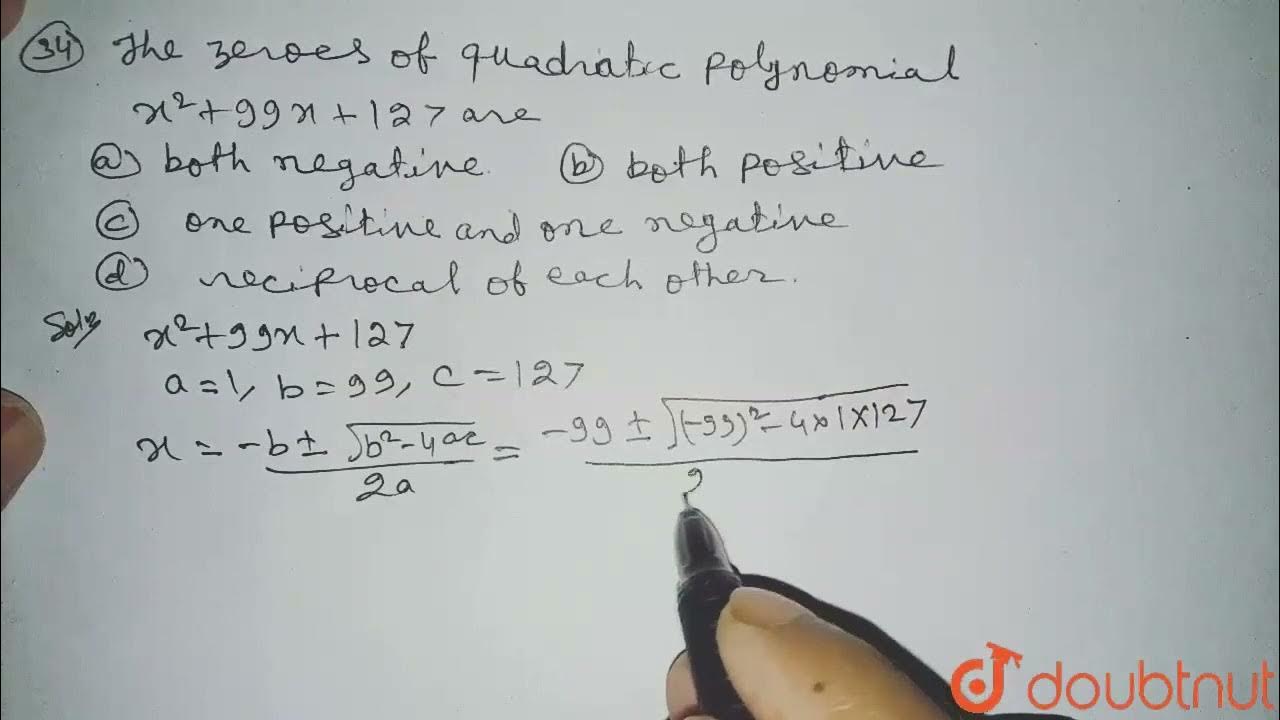 34 The zeroes of quadratic polynomial
x²+99x+127 are
a) both negative. b) both positive
c) one positive and one negative
d) reciprocal of each other.
Soln x²+99x+127
a=1, b=99, c=127
x = -b±√b²-4ac / 2a = -99±√(-99)²-4×1×127 / 2
doubtnut